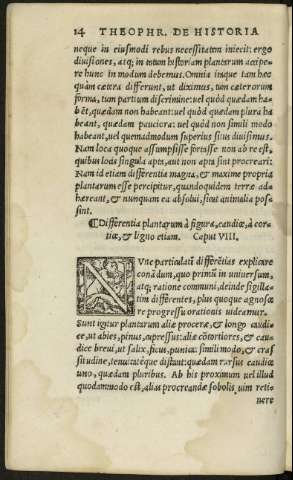 14 THEOPHR. DE HISTORIA
neque in eiusmodi rebus necessitatem iniecit: ergo
diuisiones, atq; in totum historiam plantarum accipe-
re hunc in modum debemus. Omnia inque tam hæc
quàm cætera differunt, ut diximus, tum cæterorum
forma, tum partium discrimine: uel quòd quædam ha-
bēt, quædam non habeant: uel quòd quædam plura ha
beant, quædam pauciora: uel quòd non simili modo
habeant, uel quemadmodum superius sius diuisimus.
Nam loca quoque assumpsisse fortisse non ab re est,
quibus locis singula apta, aut non apta sint procreari:
Nam id etiam differentia magna, & maxime propria
plantarum esse percipitur, quandoquidem terræ ad-
hæreant, & nunquam ea absolui, sicut animalia pos-
sint.
¶ Differentia plantarum à figura, caudice, à cor-
tice, & ligno etiam. Caput VIII.
NVnc particulatī differētias explicare
conādum, quo primū in uniuersum,
atq; ratione communi, deinde sigilla-
tim differentes, plus quoque agnosce
re progressu orationis uideamur.
Sunt igitur plantarum aliæ proceræ, & longo caudi-
ce, ut abies, pinus, cupressus: aliæ cōtortiores, & cau-
dice breui, ut salix, ficus, punica: simili modo, & cras
situdine, tenuitatéque distant: quædam rursus caudice
uno, quædam pluribus. Ab his proximum uel illud
quodammodo est, alias procreandæ sobolis uim reti-
nere